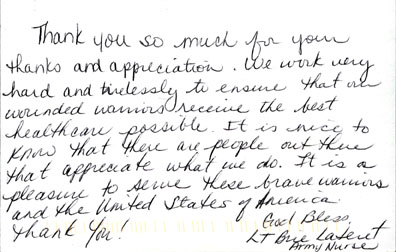 Thank you so much for your
thanks and appreciation. We work very
hard and tirelessly to ensure that our
wounded warriors receive the best
healthcare possible. It is nice to
know that there are people out there
that appreciate what we do. It is a
pleasure to serve these brave warriors
and the United States of America.
Thank You!
God Bless,
Lt
Army Nurse